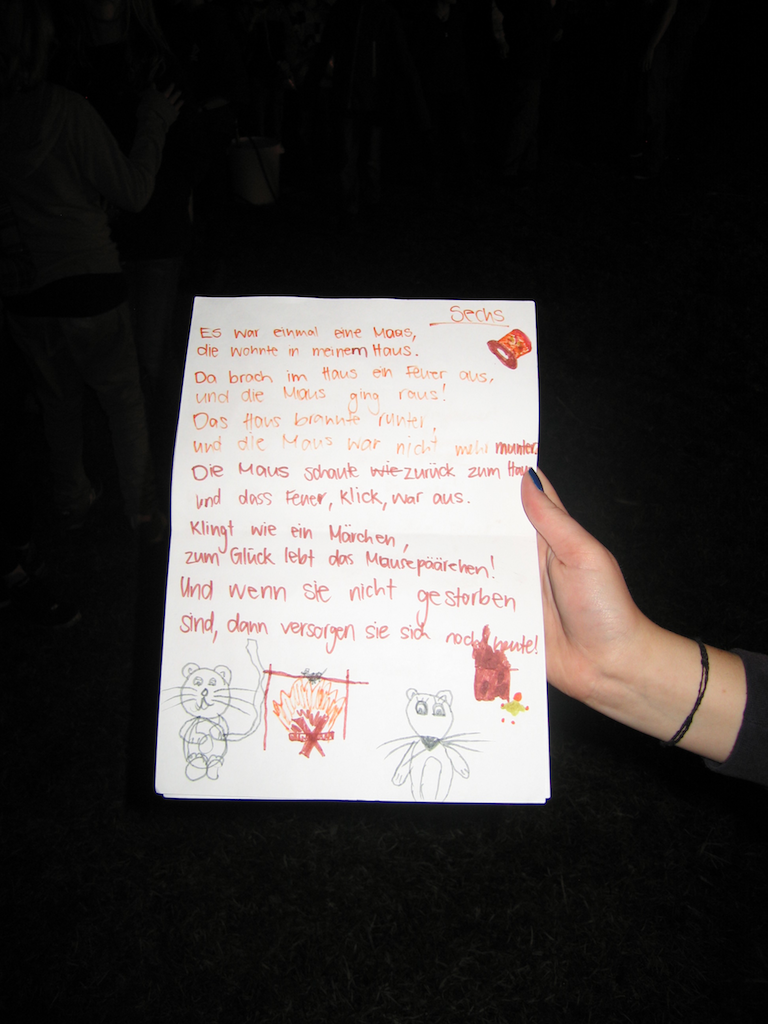 Sechs
Es war einmal eine Maus,
die wohnte in meinem Haus.
Da brach im Haus ein Feuer aus,
und die Maus ging raus!
Das Haus brannte runter,
und die Maus war nicht mehr munter.
Die Maus schaute wie zurück zum Haus
und dass Feuer, Klick, war aus.
Klingt wie ein Märchen,
zum Glück lebt das Mausepäärchen!
Und wenn sie nicht gestorben
sind, dann versorgen sie sich noch heute!